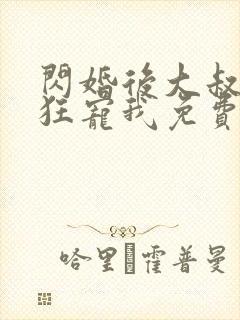 閃婚後大叔
狂寵我免費
哈里·霍普曼